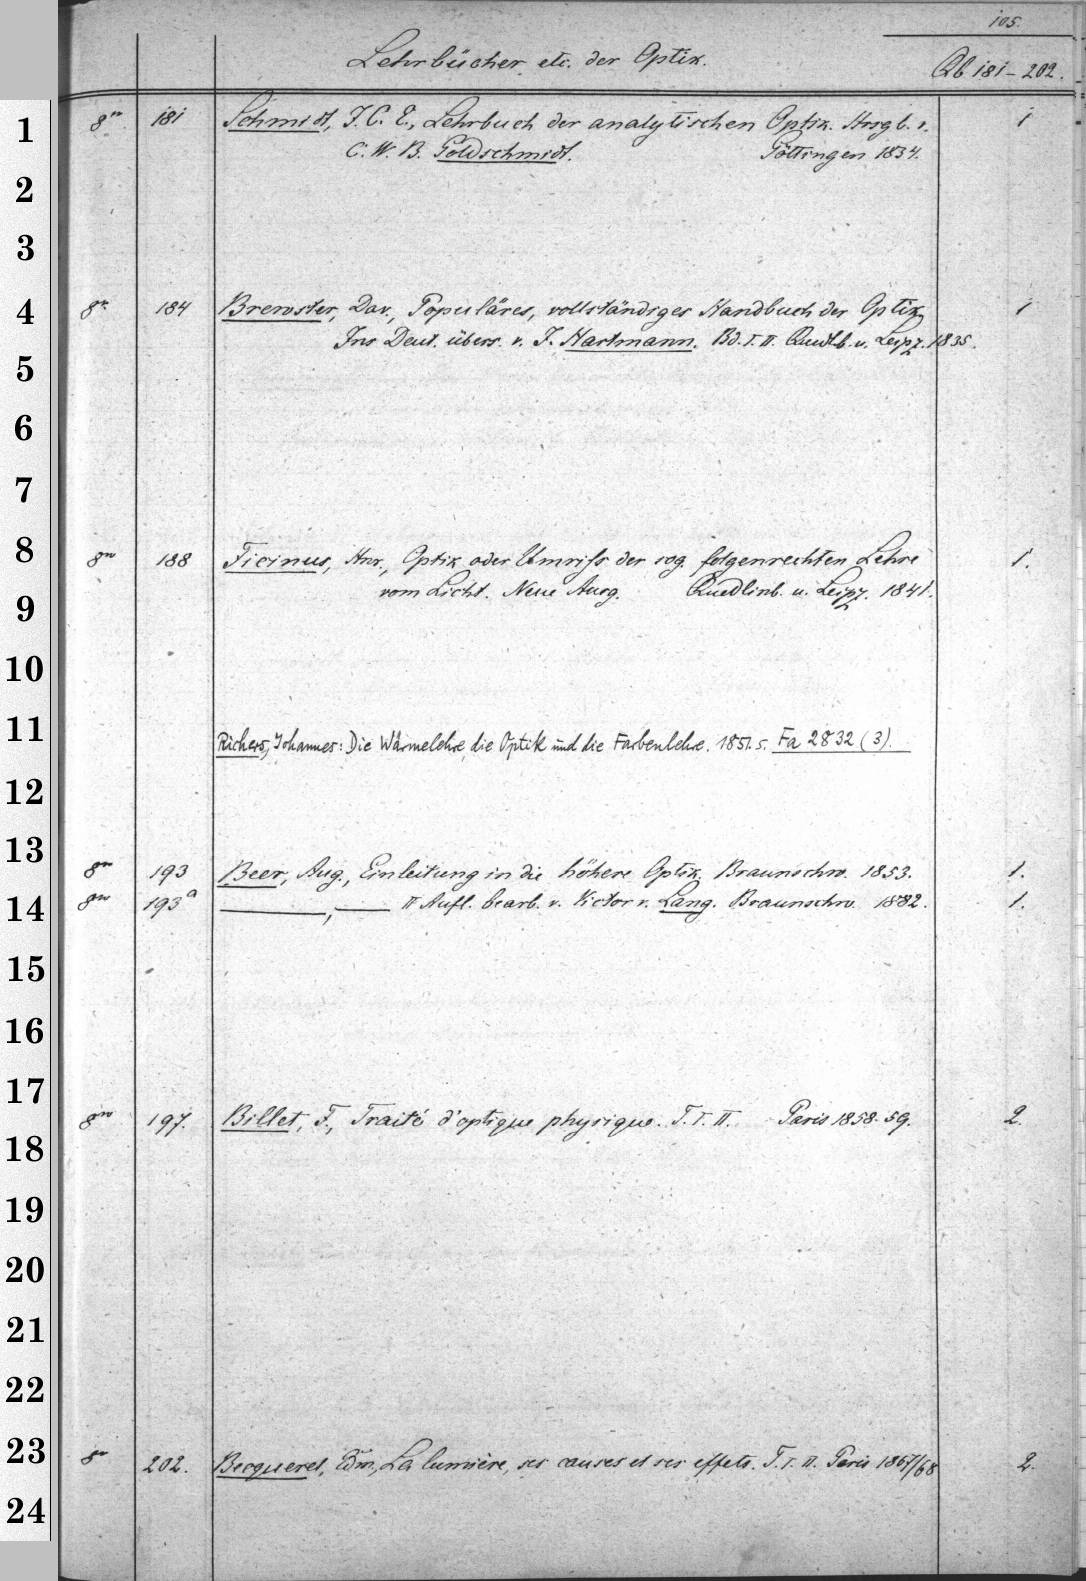 105.
Lehrbücher etc. der Optik.
Qb 181-202.
1
8º 181 Schmidt, J. C. E., Lehrbuch der analytischen Optik. Hrsgb. v. 1
C. W. B. Goldschmidt. Göttingen 1834.
2
3
4
8º 184 Brewster, Dav., Populäres, vollständiges Handbuch der Optik. 1
Ins Deut. übers. v. J. Hartmann. Bd. I. II. Quedlb. u. Leipz. 1835.
5
6
7
8
8º 188 Ficinus, Hnr., Optik oder Umriſs der sog. folgenrechten Lehre 1.
vom Licht. Neue Ausg. Quedlinb. u. Leipz. 1841.
9
10
11
Richers, Johannes: Die Wärmelehre, die Optik und die Farbenlehre. 1851. s. Fa 2832 (3).
12
13
8º 193 Beer, Aug., Einleitung in die höhere Optik. Braunschw. 1853. 1.
14
8º 193a ———, —— II Aufl. bearb. v. Victor v. Lang. Braunschw. 1882. 1.
15
16
17
8º 197. Billet, F., Traité d'optique physique. T. I. II. Paris 1858-59. 2.
18
19
20
21
22
23
8º 202. Becquerel, Edm., La lumière, ses causes et ses effets. T. I. II. Paris 1867/68 2.
24